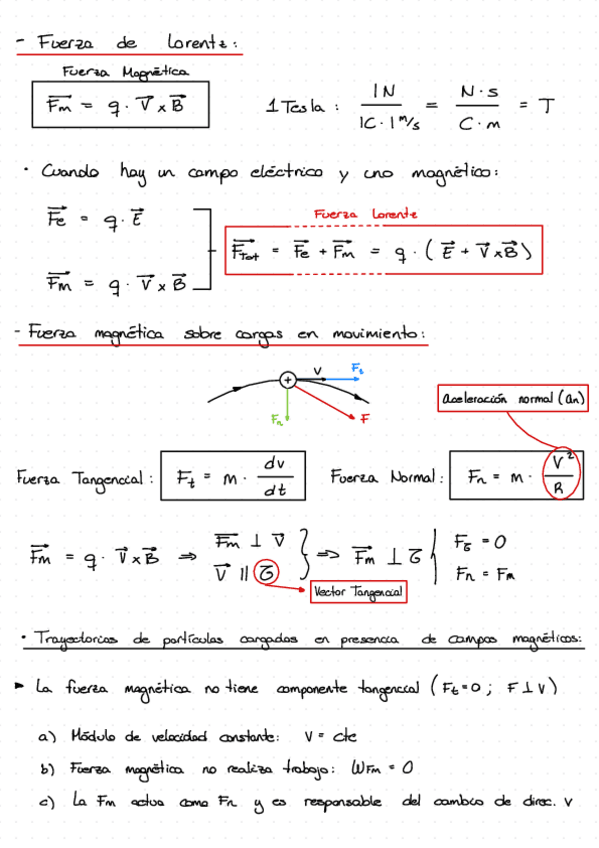 - Fuerza de Lorentz:
Fuerza Magnética
F⃗m = q · V⃗ x B⃗
1 Tesla : 1N / 1C · 1 m/s = N · s / C · m = T
· Cuando hay un campo eléctrico y uno magnético:
Fuerza Lorente
F⃗e = q · E⃗
F⃗tot = F⃗e + F⃗m = q · ( E⃗ + V⃗ x B⃗ )
F⃗m = q · V⃗ x B⃗
- Fuerza magnética sobre cargas en movimiento:
+ V Ft
Fn F
Aceleración normal (an)
Fuerza Tangencial : Ft = m · dv / dt
Fuerza Normal : Fn = m · V² / R
F⃗m = q · V⃗ x B⃗ ⇒ F⃗m ⊥ V⃗ } ⇒ F⃗m ⊥ τ | Fτ = 0
V⃗ || τ } Fn = Fm
Vector Tangencial
· Trayectorias de partículas cargadas en presencia de campos magnéticos:
► La fuerza magnética no tiene componente tangencial ( Ft = 0 ; F ⊥ V )
a) Módulo de velocidad constante: V = cte
b) Fuerza magnética no realiza trabajo: WFm = 0
c) La Fm actua como Fn y es responsable del cambio de direc. v